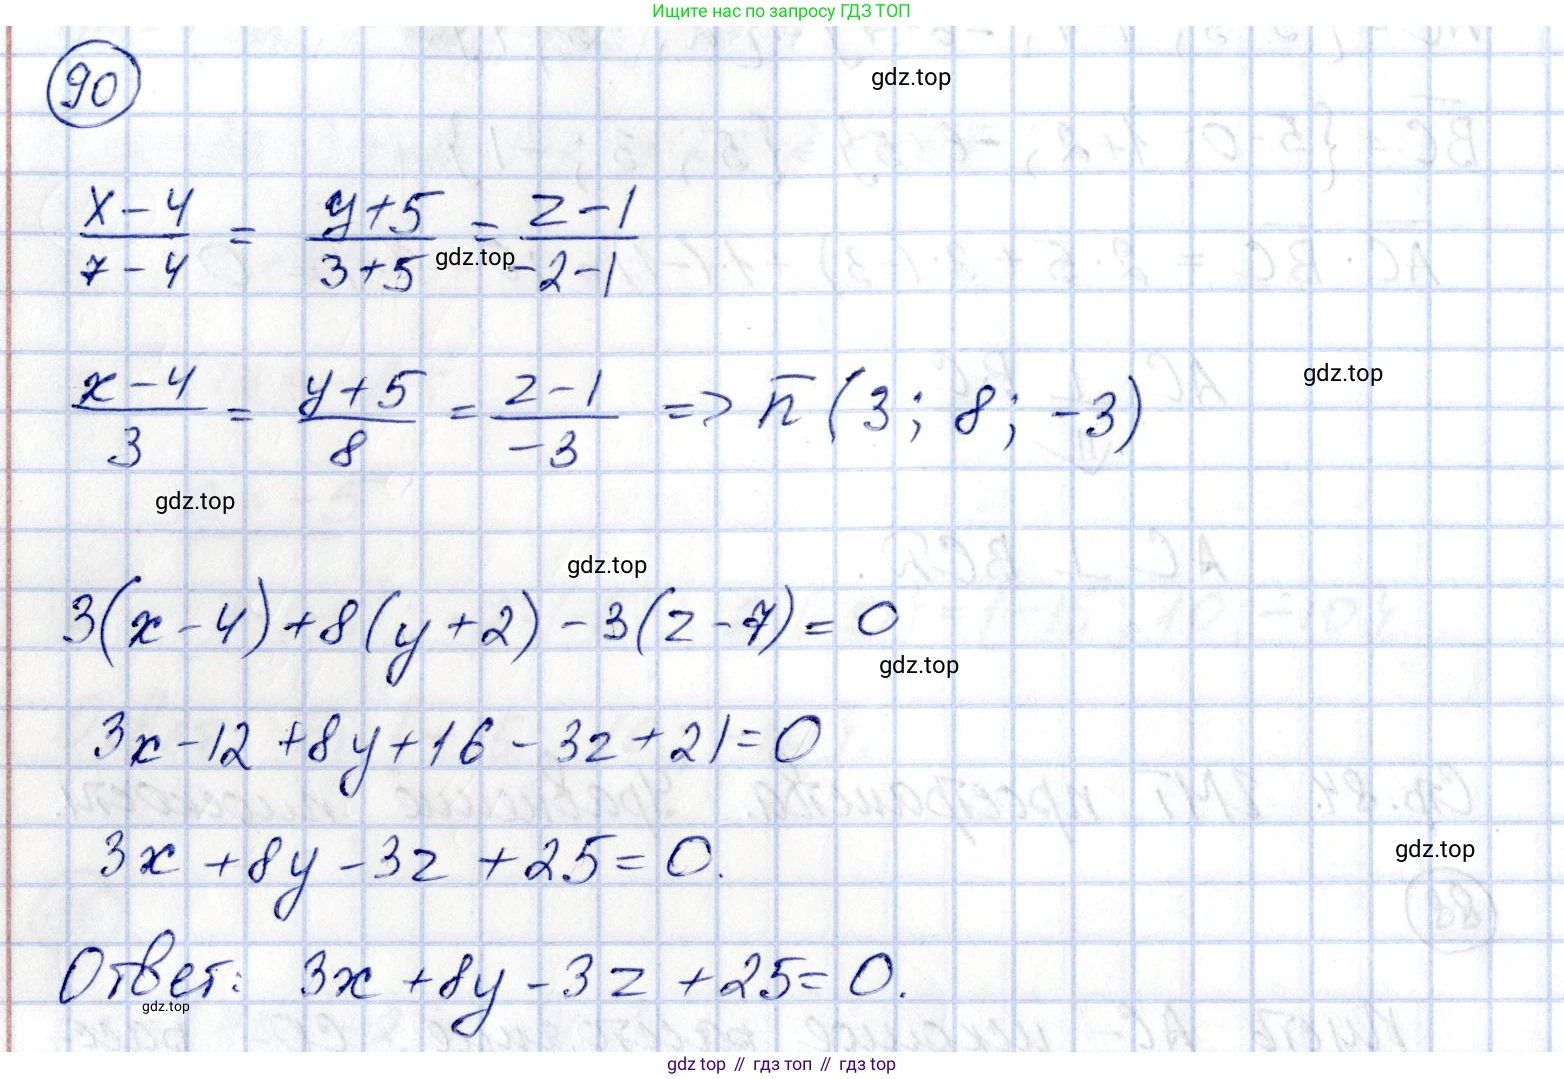 Ищите нас по запросу ГДЗ ТОП
90
gdz.top
x-4/7-4 = y+5/3+5 = z-1/-2-1
gdz.top
gdz.top
x-4/3 = y+5/8 = z-1/-3 => n̅ (3; 8; -3)
gdz.top
gdz.top
3(x-4)+8(y+2)-3(z-7)=0
gdz.top
3x-12+8y+16-3z+21=0
3x+8y-3z+25=0.
gdz.top
Ответ: 3x+8y-3z+25=0.
gdz.top
gdz.top // гдз топ // gdz.top